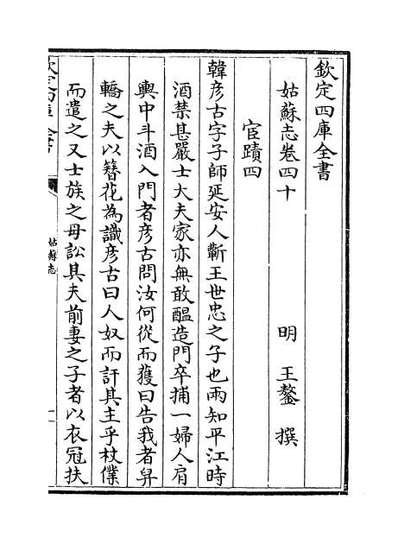 欽定四庫全書
姑蘇志卷四十
明 王鏊 撰
宦蹟四
韓彦古字子師延安人蘄王世忠之子也兩知平江時
酒禁甚嚴士大夫家亦無敢醖造門卒捕一婦人肩
輿中斗酒入門者彦古問汝何從而獲曰告我者舁
轎之夫以簪花為識彦古曰人奴而訐其主乎杖僕
而遣之又士族之母訟其夫前妻之子者以衣冠扶
姑蘇志